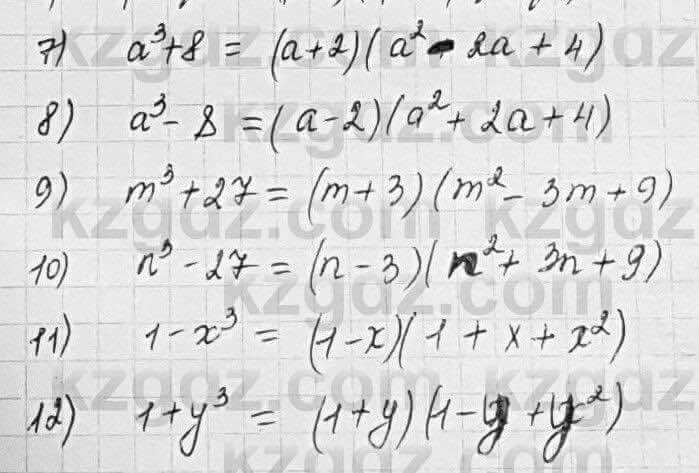 7) a³+8 = (a+2)(a²-2a+4)
8) a³-8 = (a-2)(a²+2a+4)
9) m³+27 = (m+3)(m²-3m+9)
10) n³-27 = (n-3)(n²+3n+9)
11) 1-x³ = (1-x)(1+x+x²)
12) 1+y³ = (1+y)(1-y+y²)
kzgdz.com